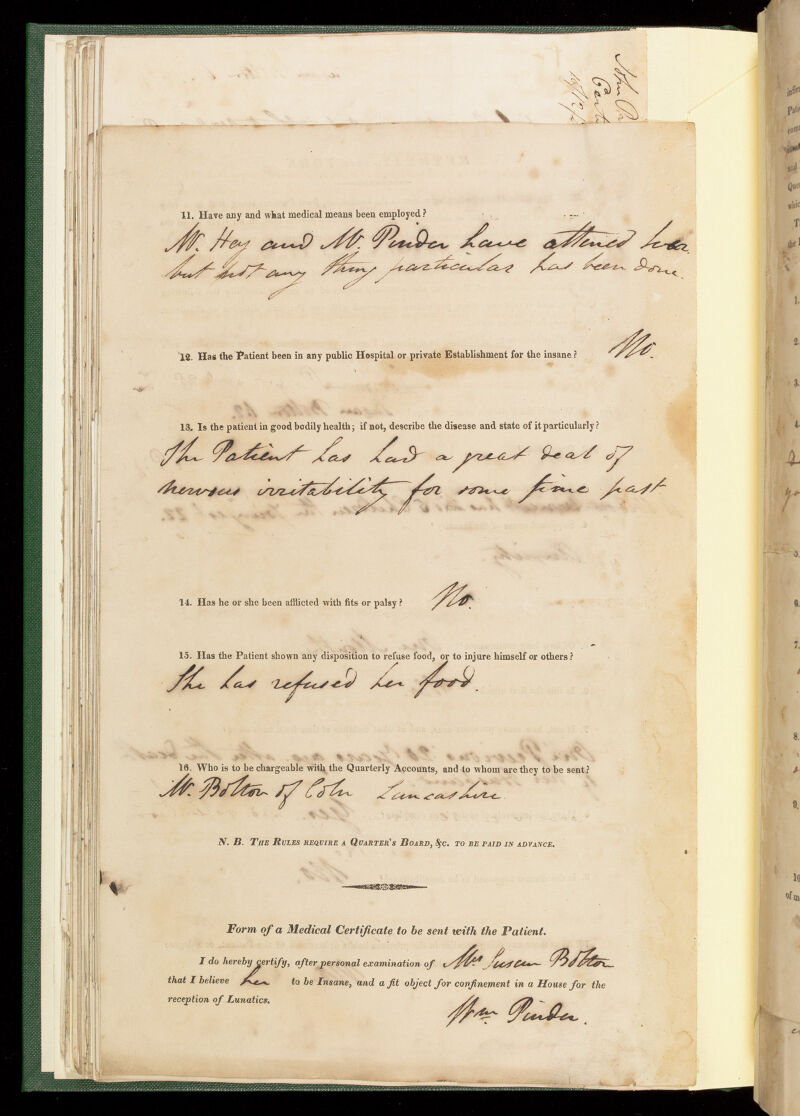 11. Have any and what medical means been employed?
Mr. Hey and Mr. Pinder have attened her
but not any thing particular has been done.
12. Has the Patient been in any public Hospital or private Establishment for the insane? No.
13. Is the patient in good bodily health; if not, describe the disease and state of it particularly?
The Patient has had a great deal of
nervous irritability for some time past
14. Has he or she been afflicted with fits or palsy? No.
15. Has the Patient shown any disposition to refuse food, or to injure himself or others?
She has refused her food.
16. Who is to be chargeable with the Quarterly Accounts, and to whom are they to be sent?
Mr. Bolton of Coln Lancashire
N. B. The Rules require a Quarter's Board, &c. to be paid in advance.
Form of a Medical Certificate to be sent with the Patient.
I do hereby certify, after personal examination of Mrs Susan Bolton
that I believe her to be Insane, and a fit object for confinement in a House for the
reception of Lunatics.
Wm. Pinder.